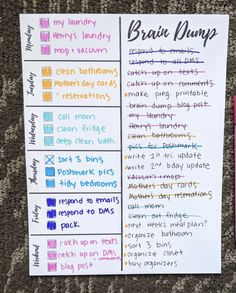 Monday
my laundry
Henry's laundry
mop + vacuum
Tuesday
clean bathrooms
Mother's day cards
" reservations
Wednesday
call mom
clean fridge
deep clean bath
Thursday
sort 3 bins
Poshmark pics
tidy bedrooms
Friday
respond to emails
respond to DMs
pack
Weekend
catch up on texts
catch up on DMs
blog post
comments
Brain Dump
respond to emails
respond to all DMs
catch up on texts
catch up on comments
make preg. printable
brain dump blog post
my laundry
Henry's laundry
clean bathrooms
pics for Poshmark
write 1st tri. update
write 2nd bday update
vacuum + mop
Mother's day cards
Mother's day reservations
call mom
clean out fridge
next week's meal plan?
organize bathroom
sort 3 bins
organize closet
buy organizers